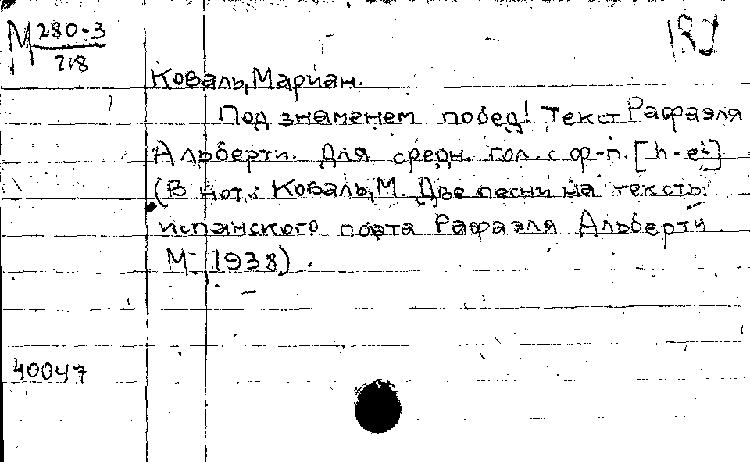 М 280-3
218
Коваль, Мариан.
Под знаменем побед! Текст Рафаэля
Альберти. Для средн. гол. с ф-п. [h-e²]
(В нот.: Коваль, М. Две песни на тексты
испанского поэта Рафаэля Альберти
М 1938).
40047